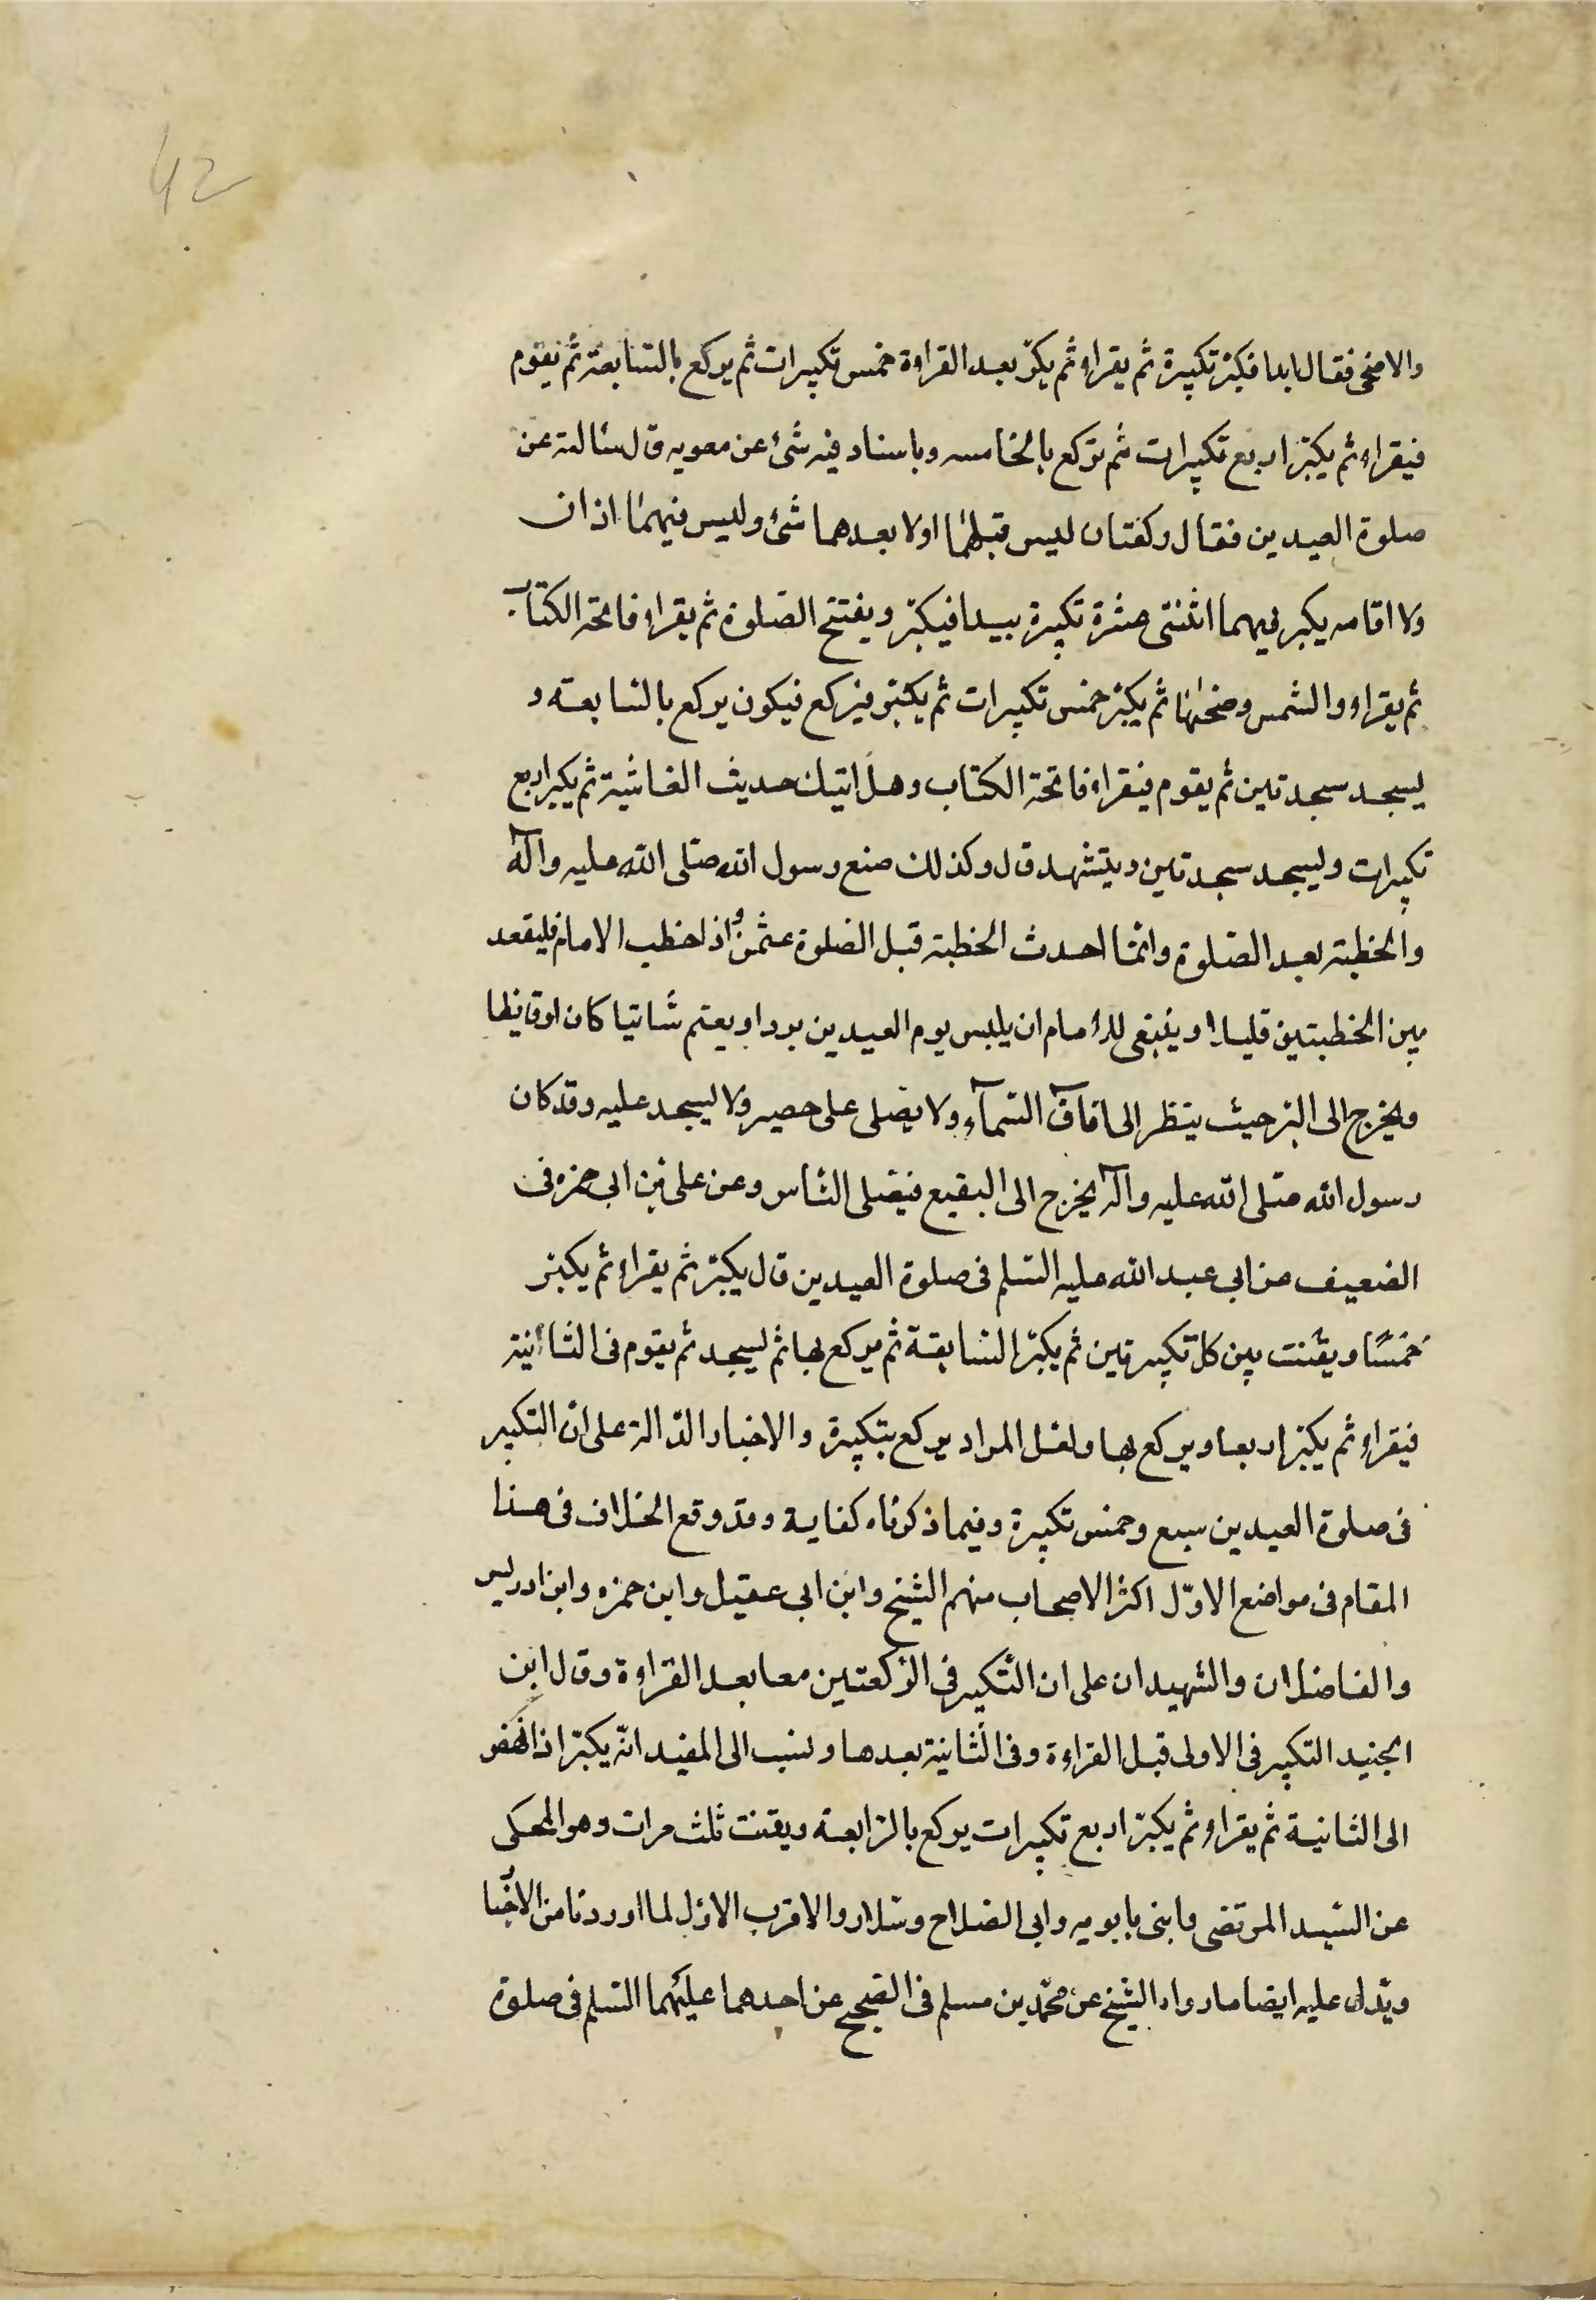 42
والاضحى فقال ابدا فكبّر تكبيرة ثم يقراء ثم يكبّر بعد القراءة خمس تكبيرات ثم يركع بالسّابعة ثم يقوم
فيقراء ثم يكبّر اربع تكبيرات ثم يركع بالخامسه وباسناد فيه شئ عن معويه قال سالته عن
صلوة العيدين فقال ركعتان ليس قبلهما اولا بعدهما شئ وليس فيهما اذان
ولا اقامه يكبر فيهما اثنتى عشرة تكبيرة يبدا فيكبّر ويفتتح الصّلوة ثم يقراء فاتحة الكتاب
ثم يقراء والشمس وضحيها ثم يكبّر خمس تكبيرات ثم يكبّر فيركع فيكون يركع بالسّابعته و
يسجد سجدتين ثم يقوم فيقراء فاتحة الكتاب وهل اتيك حديث الغاشية ثم يكبر اربع
تكبيرات ويسجد سجدتين ويتشهد قال وكذلك صنع رسول الله صلى الله عليه وآله
والخطبة بعد الصّلوة وانّما احدث الخطبة قبل الصّلوة عثمن واذا خطب الامام فليقعد
بين الخطبتين قليلا وينبغى للامام ان يلبس يوم العيدين بردا ويعتم شاتيا كان اوقايظا
ويخرج الى البرّ حيث ينظر الى افاق السّمآء ولا يصلى على حصير ولا يسجد عليه وقد كان
رسول الله صلى الله عليه وآله يخرج الى البقيع فيصلى النّاس وعن على بن ابى حمزه فى
الضعيف عن ابى عبد الله عليه السّلم فى صلوة العيدين قال يكبّر ثم يقراء ثم يكبّر
خمسًا ويقنت بين كل تكبيرتين ثم يكبّر السّابعة ثم يركع بها ثم يسجد ثم يقوم فى الثّانية
فيقراء ثم يكبّر اربعا ويركع بها ولعل المراد يركع بتكبيرة والاخبار الدّالة على انّ التكبير
فى صلوة العيدين سبع وخمس تكبيرة وفيما ذكرناه كفاية وقد وقع الخلاف فى هذا
المقام فى مواضع الاوّل اكثر الاصحاب منهم الشيخ وابن ابى عقيل وابن حمزه وابن ادريس
والفاضلان والشهيدان على ان التّكبير فى الرّكعتين معا بعد القراءة وقال ابن
الجنيد التكبير فى الاولى قبل القراءة وفى الثّانية بعدها ونسب الى المفيد انّه يكبّر اذا نهض
الى الثانية ثم يقراء ثم يكبّر اربع تكبيرات يركع بالرّابعة ويقنت ثلث مرات وهو المحكى
عن السّيد المرتضى وابنى بابويه وابى الصّلاح وسّلار والاقرب الاوّل لما اوردنا من الاخبا
ويدّل عليه ايضا مارواه الشيخ عن محمّد بن مسلم فى الصّحيح عن احدهما عليهما السّلم فى صلوة